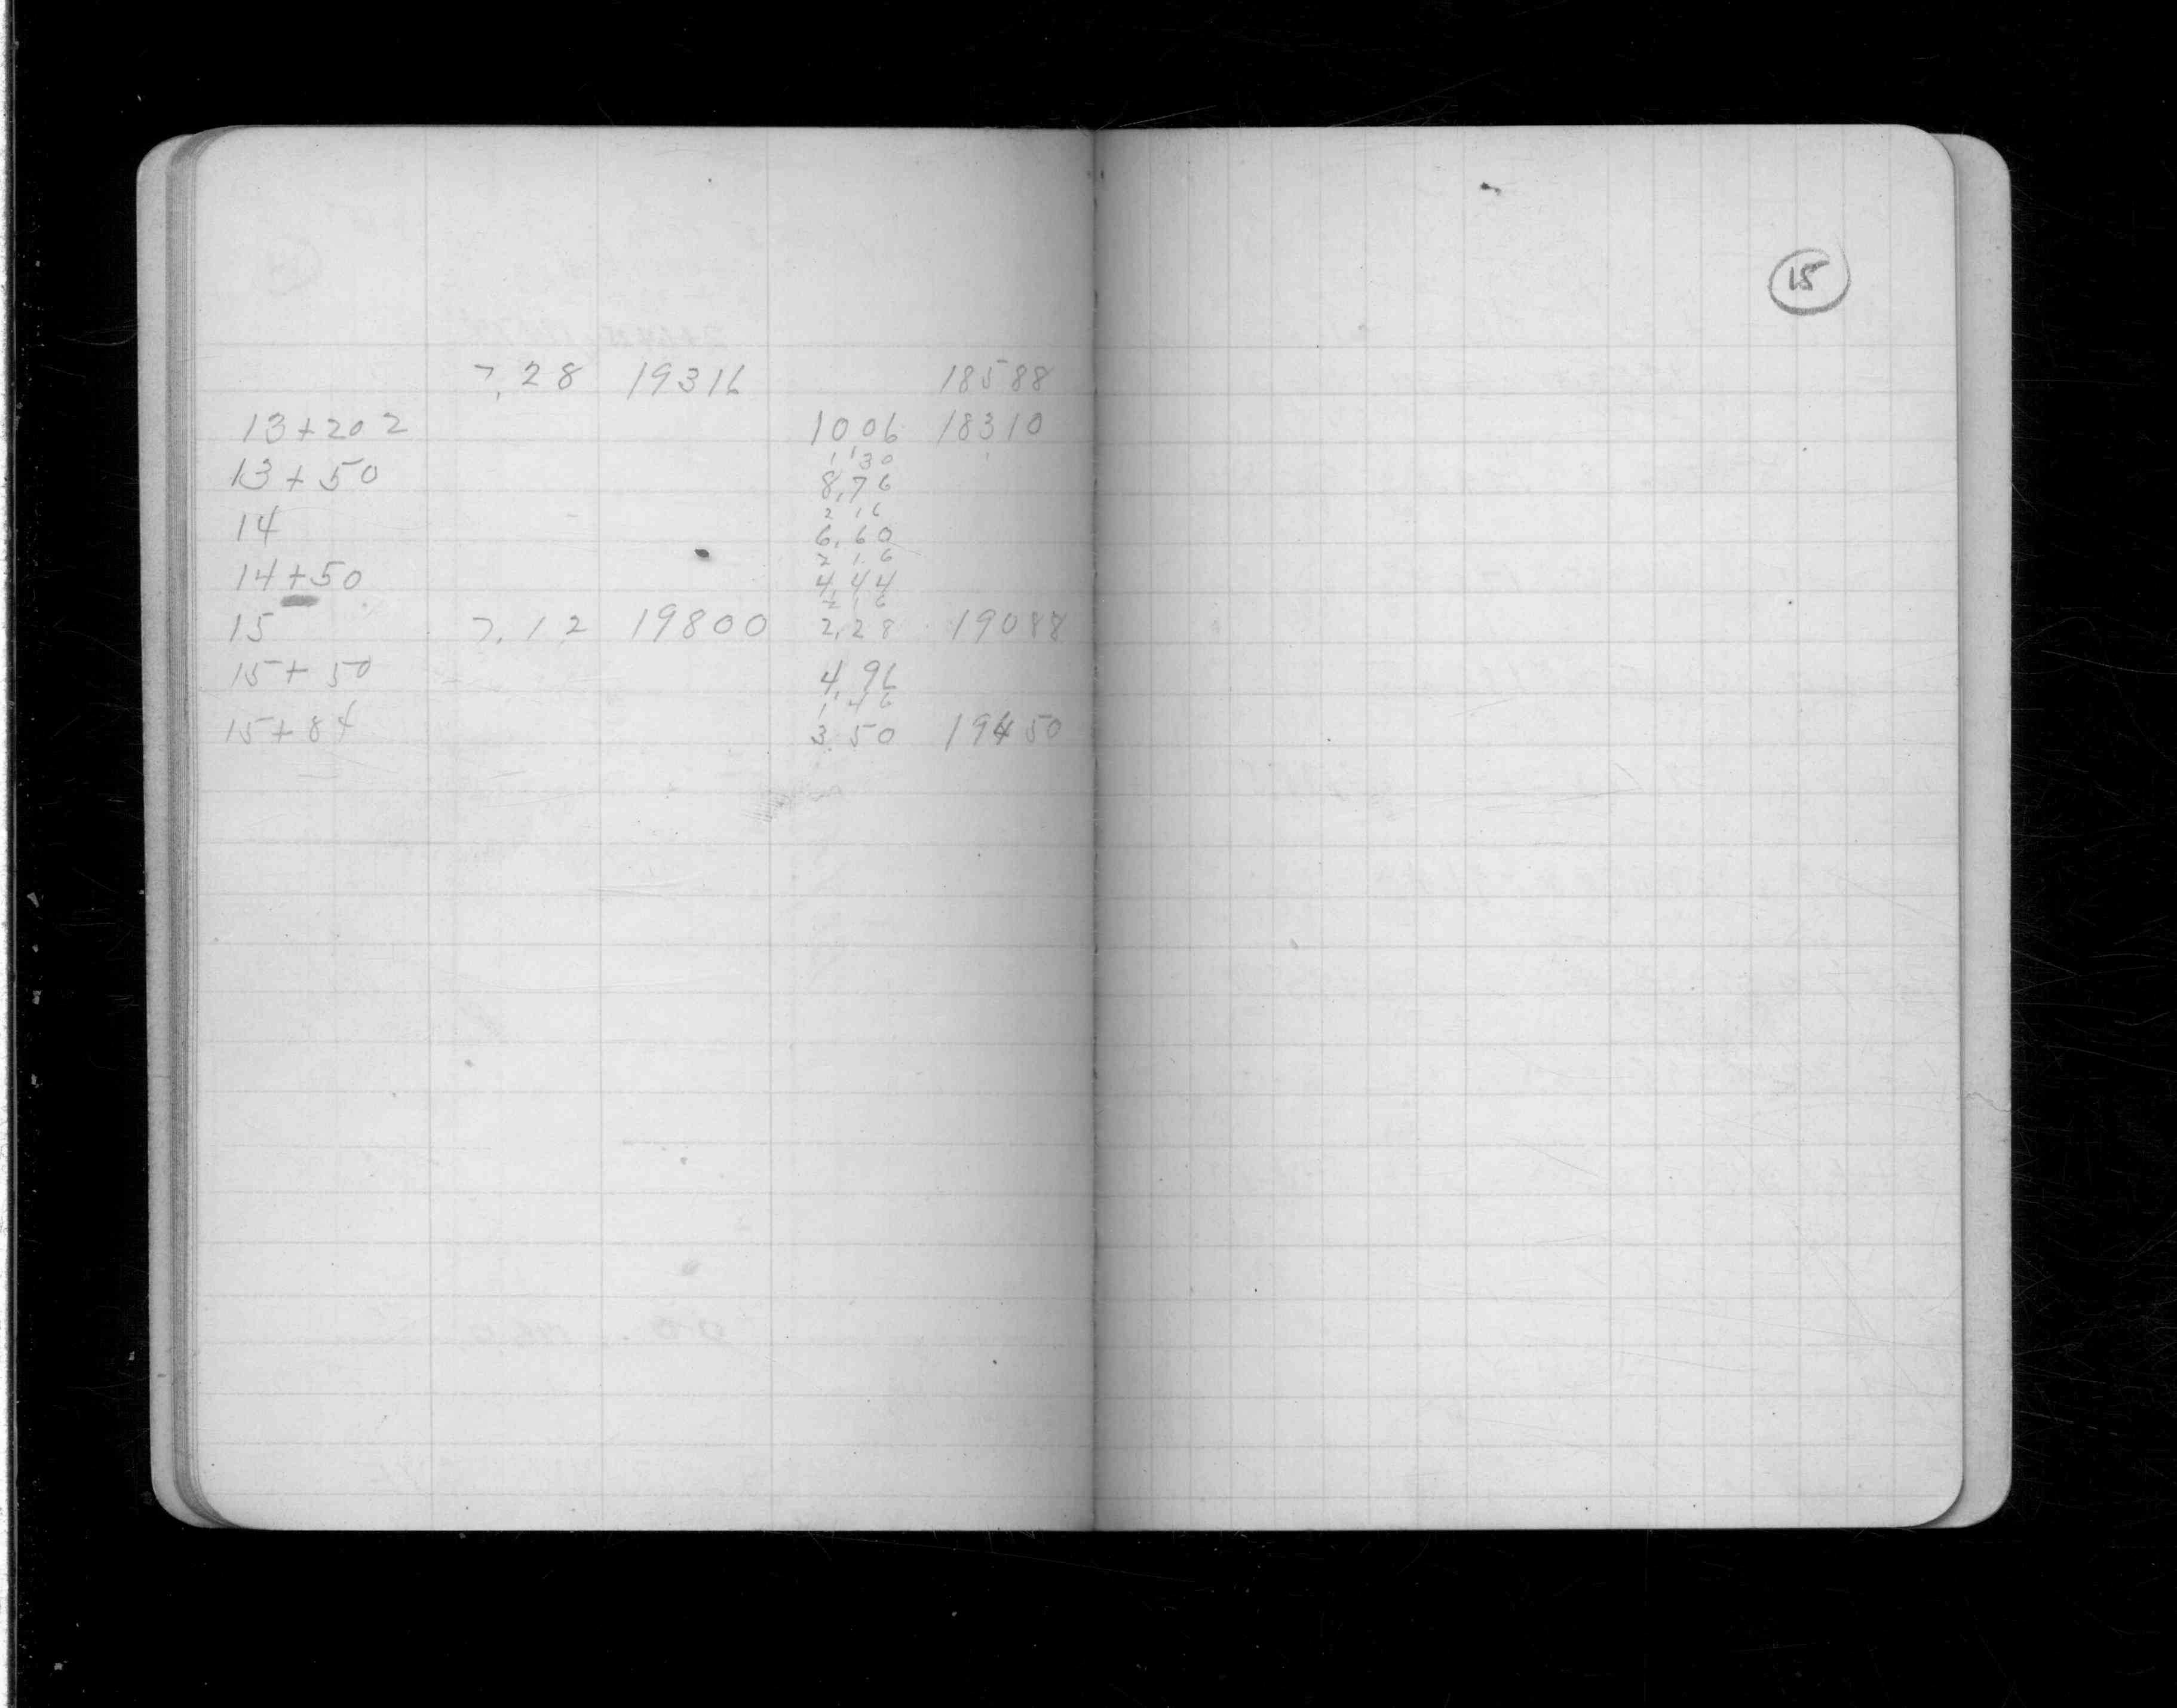 15
7.28 19316 18588
13+20 2 1006 18310
1 30
13+50 8,76
2 16
14 6,60
2 16
14+50 4 44
2 16
15 7.12 19800 2,28 19088
15+50 4,96
1 46
15+84 3 50 19450